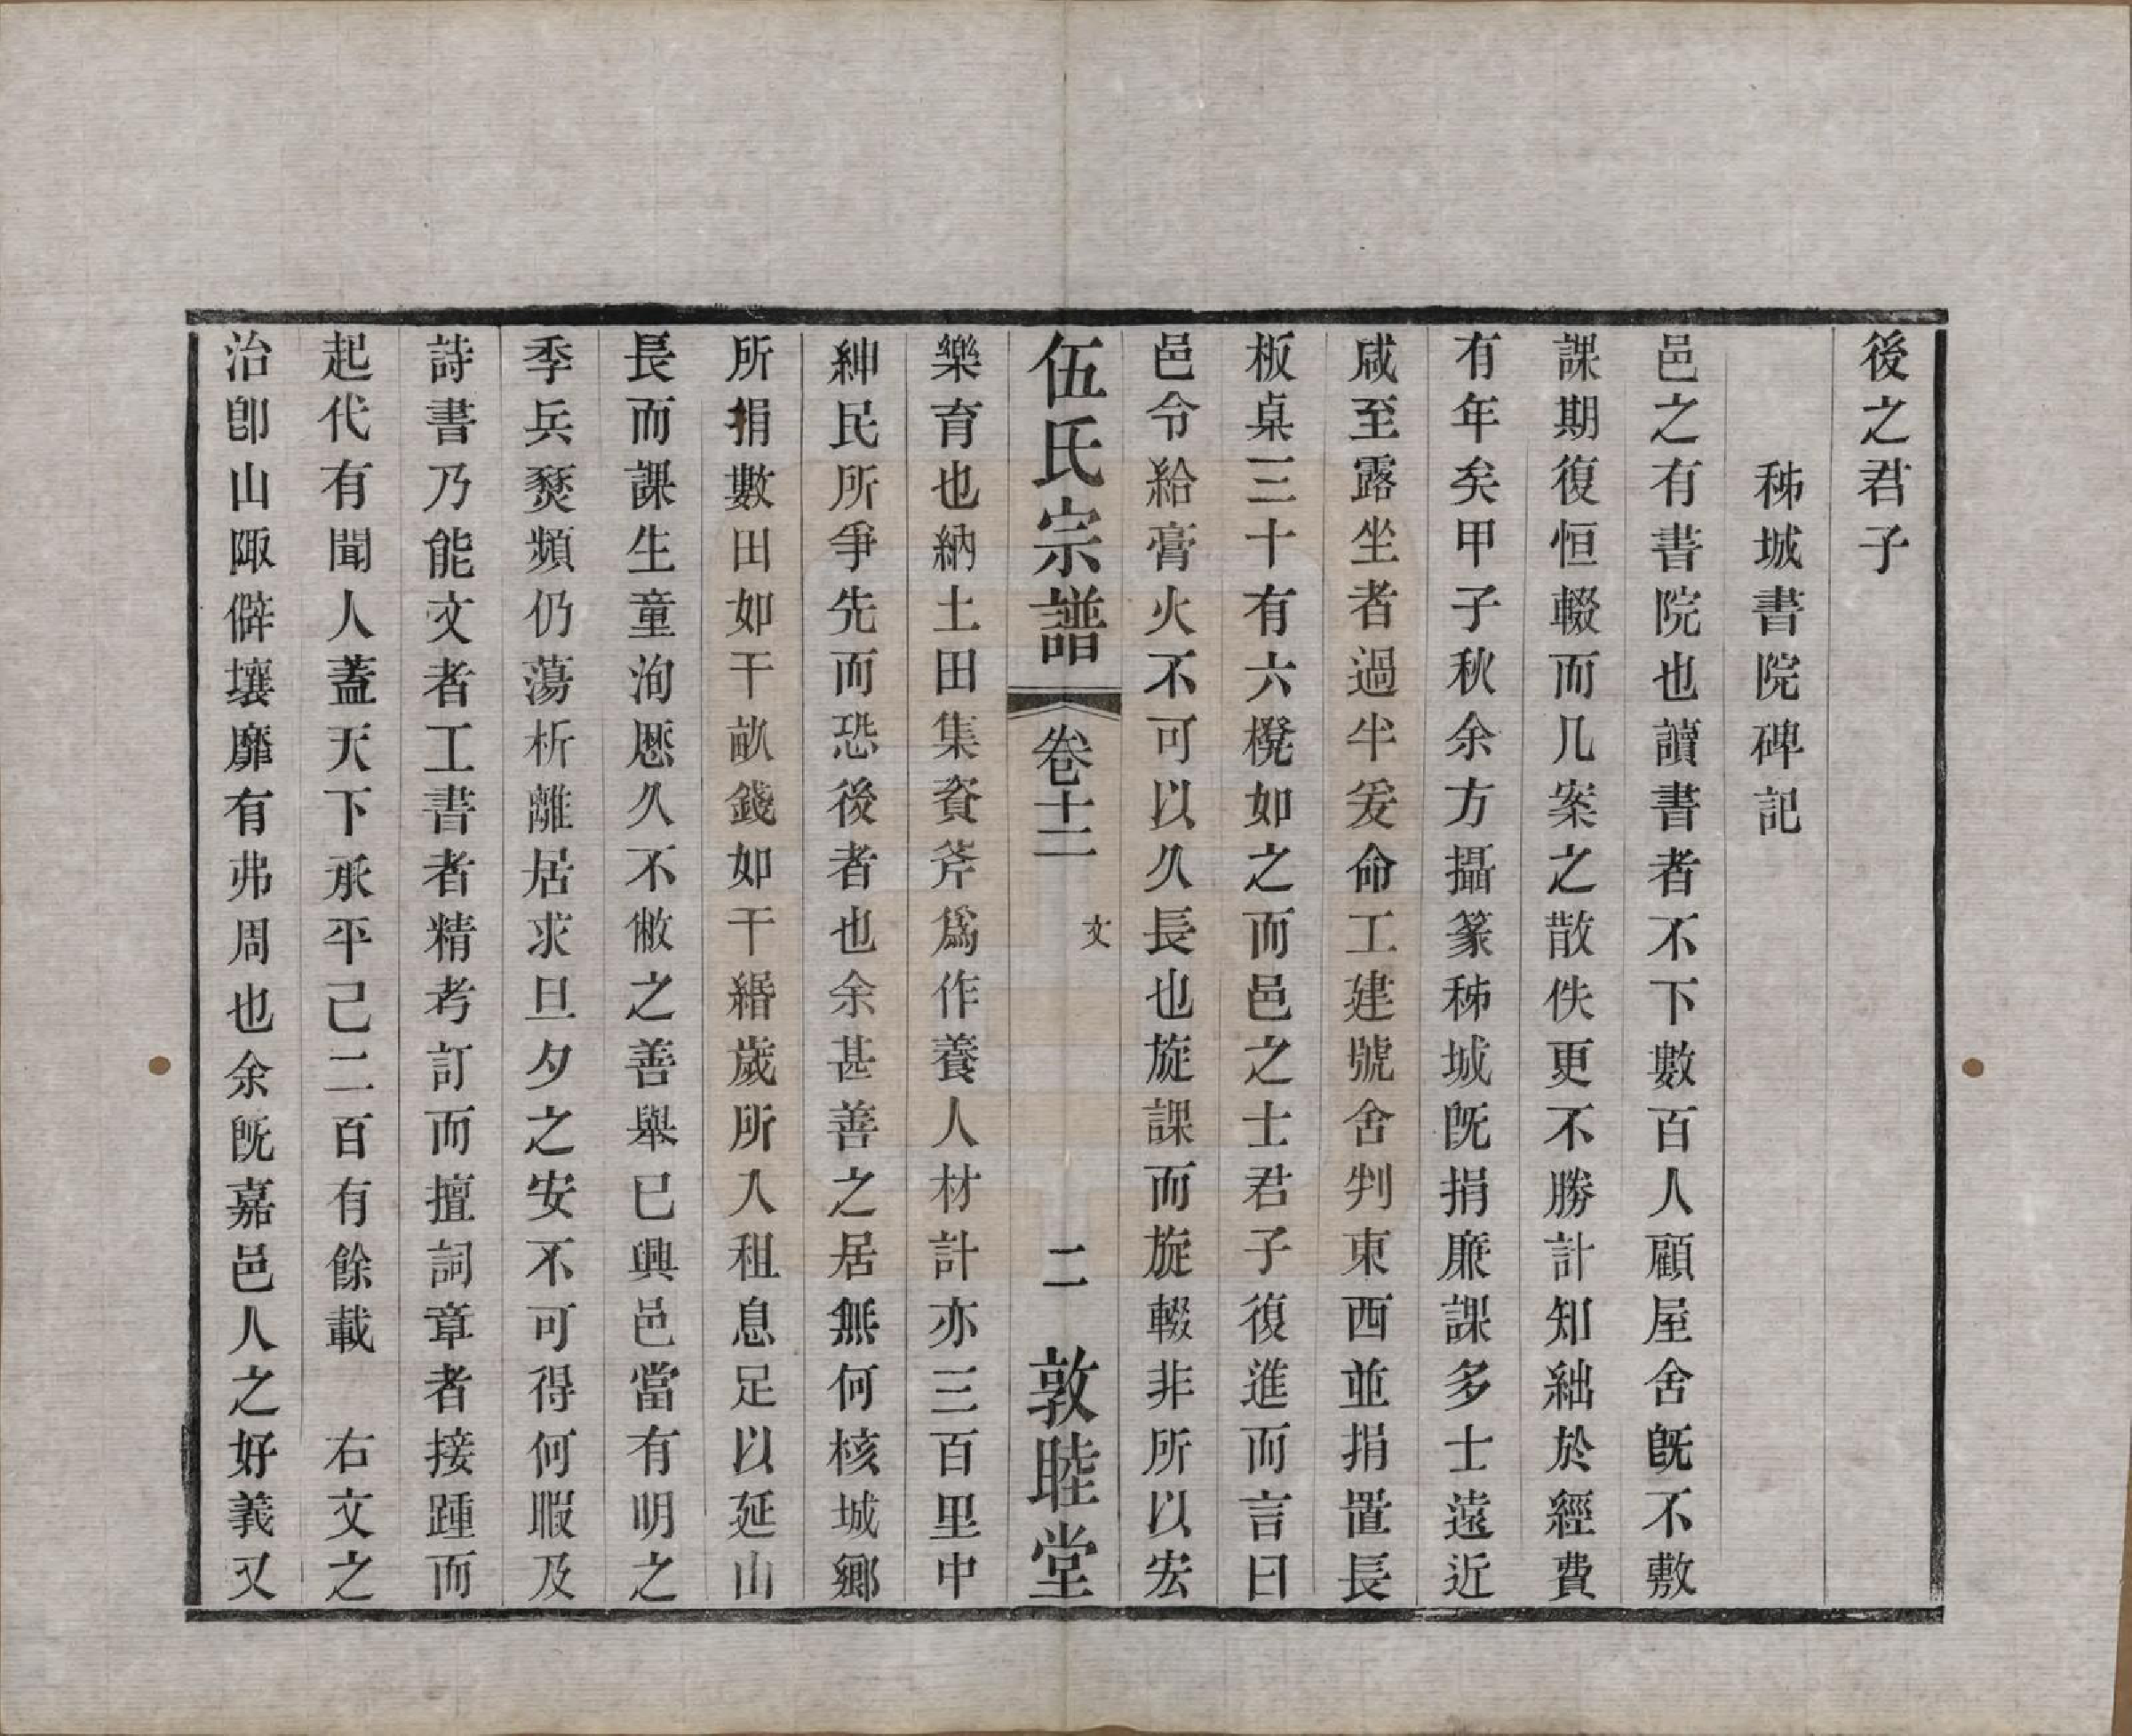 後之君子
秭城書院碑記
邑之有書院也讀書者不下數百人顧屋舍旣不敷
課期復恒輟而几案之散佚更不勝計知絀於經費
有年矣甲子秋余方攝篆秭城旣捐廉課多士遠近
咸至露坐者過半爰命工建號舍判東西並捐置長
板桌三十有六櫈如之而邑之士君子復進而言曰
邑令給膏火不可以久長也旋課而旋輟非所以宏
伍氏宗譜 卷十二 文 二 敦睦堂
樂育也納土田集資斧爲作養人材計亦三百里中
紳民所爭先而恐後者也余甚善之居無何核城鄉
所捐數田如干畝錢如干緡歲所入租息足以延山
長而課生童洵歷久不敝之善舉已興邑當有明之
季兵燹頻仍蕩析離居求旦夕之安不可得何暇及
詩書乃能文者工書者精考訂而擅詞章者接踵而
起代有聞人蓋天下承平己二百有餘載 右文之
治卽山陬僻壤靡有弗周也余旣嘉邑人之好義又